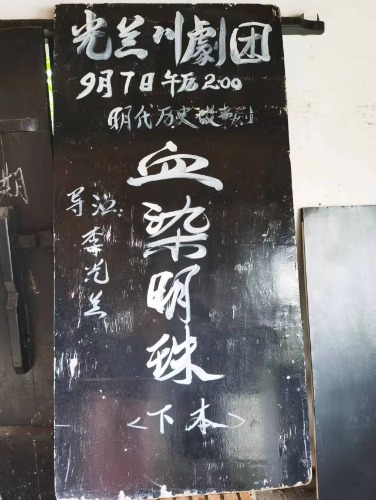 光兰川劇团
9月7日午后2:00
明代历史故事剧
血染明珠
导演:李光兰
<下本>
期